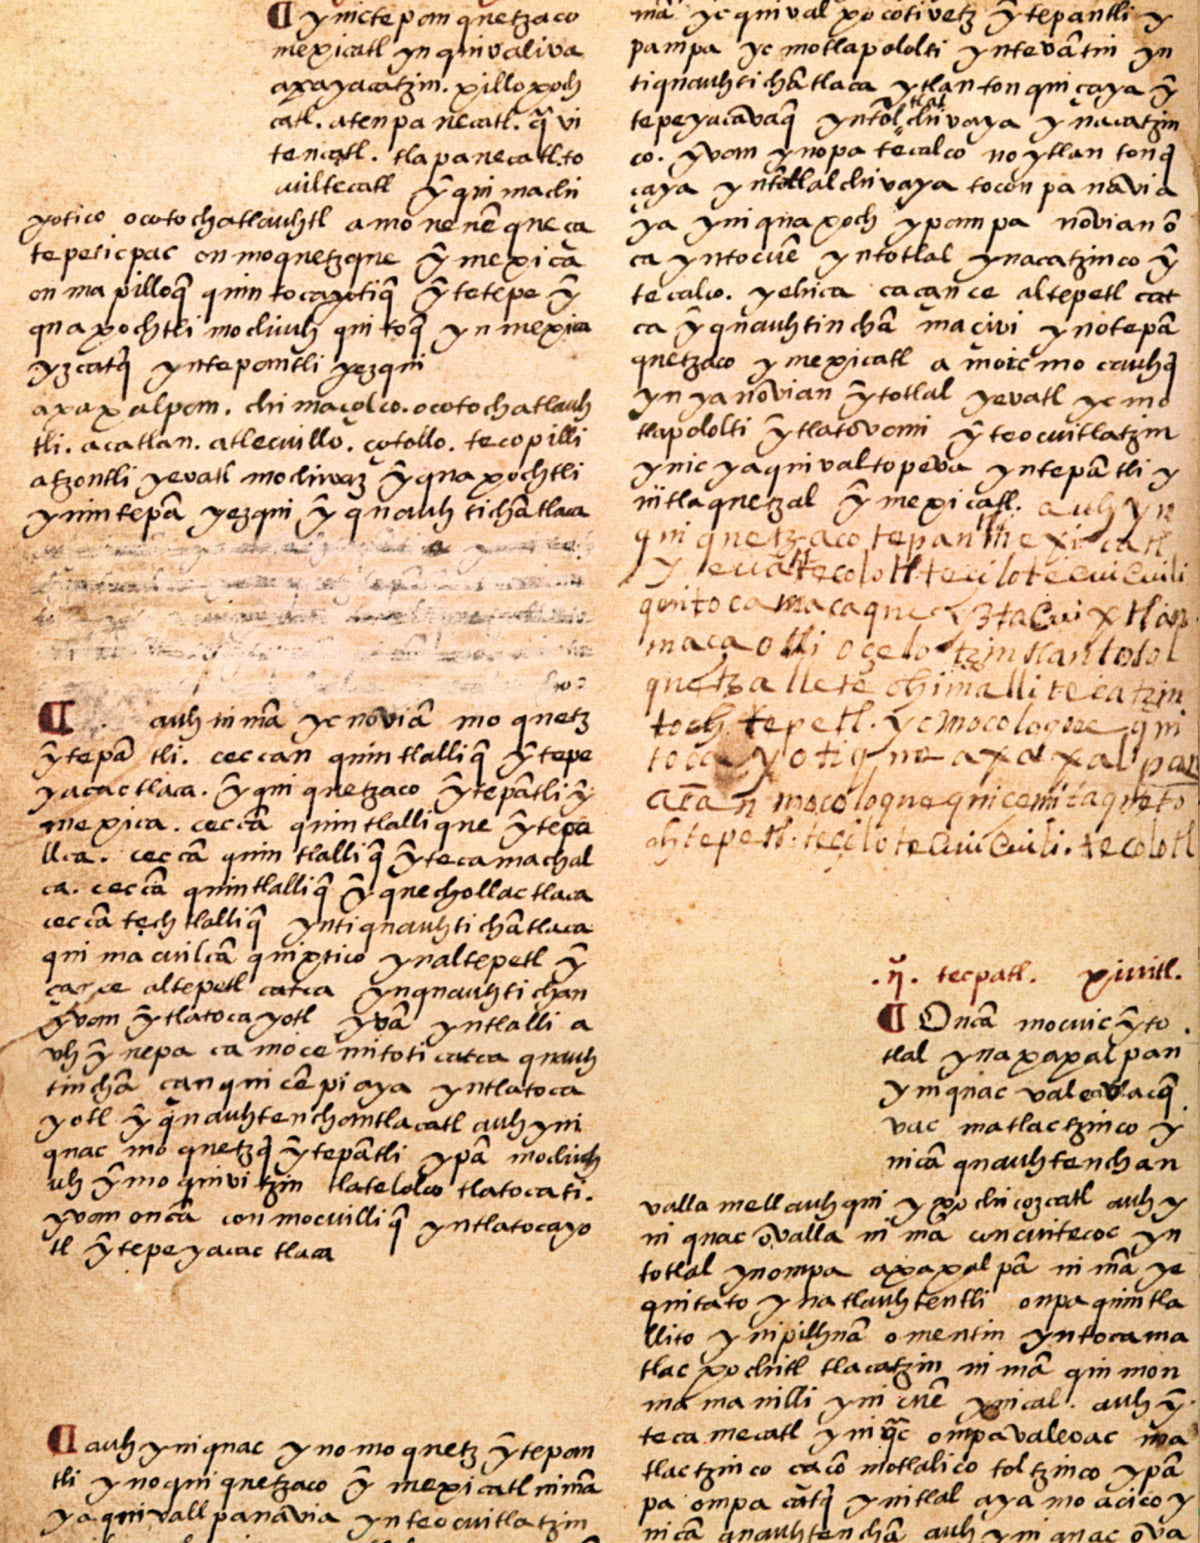 ¶ ynictepan quetzaco
mexicatl yn quivaliva
axayacatzin. xilloxoch
catl. atenpanecatl. q̄vi
tencatl. tlapanecatl. to
cuiltecatl ȳquimachi
yotico ocotochatlauhtl amo nenē queça
tepeticpac onmoquetzque ȳmexica
onmapilloq̄ quintocayotiq̄ ȳtetepe ȳ
quaxochtli mochiuh quitoq̄ yn mexica
yzcatq̄ yntepantli yezqui
axaxalpan. chimaçolco. ocotochatlauh
tli. acatlan. atlecuillo. çotollo. tecopilli
atzontli yevatl mochivaz ȳquaxochtli
ynintepā yezqui ȳ quauhtichātlaca
¶ auh nimā ycnoviā moquetz
ȳtepātli. ceccan quintlalliq̄ ȳtepe
yacactlaca. ȳquiquetzaco ȳtepātli ȳ
mexica. ceccā quintlallique ȳtepa
llca. ceccā quintlalliq̄ ȳtecamachal
ca. ceccā quintlalliq̄ ȳquechollactlaca
ceccā techtlalliq̄ yntiquauhtichātlaca
quimacuilcā quixtico ynaltepetl ȳ
çan ce altepetl catca ynquauhtichan
ȳvan ȳtlatocayotl yvā yntlalli a
vh ȳnepa camocemitoti catca quauh
tinchā canquicēpiaya yntlatoca
yotl ȳquauhtenchantlacatl auhyni
quac moquetzq̄ ȳtepātli ypā mochiuh
uh ȳmoquivitzin tlatelolco tlatocati.
yvan oncā conmocuilliq̄ yntlatocayo
tl ȳtepeyacactlaca
¶ auh yniquac ynomoquetz ȳtepan
tli ynoquiquetzaco ȳ mexicatl nimā
yaquivallpanavia ynteocuitlatzin
mā ycquivalxocotivetz ȳtepantli y
pampa ycmotlapololti yntevātin yn
tiquauhtichātlaca ytlantonquiçaya ȳ
tepeyacāvaq̄ yntōtlalchivaya ynacatzin
co. ȳvan ynopa tecalco noytlantonq̄
çaya yntōtlalchivaya toconpanavia
ya yniquaxoch ypampa nōvian ō
ca yntocuē yntotlal ynacatzinco ȳ
tecalco. yehica caçan ce altepetl cat
ca ȳquauhtinchā macivi ynotepā
quetzaco ymexicatl amoicmocauhq̄
ynyanōvian ȳtotlal yevatl ycmo
tlapololti ȳtlatōvani ȳteocuitlatzin
ynicyaquivaltopeva yntepātli y
nitlaquetzal ȳmexicatl. auh yn
quiquetzaco tepantli mexicatl
y yevatl tecolotl. tecilotecuicuili
quitoca macaquec yztacuixtlan
maçaolli oçelotzintlan totol
quetzalletē chimallitecatzin
toch. tepetl. ycmocoloque qui
tocayotique axaxalpan
acātlan mocoloque quicemitaque to
chtepetl. tecilotecuicuili. tecolotl
.ij. tecpatl. xivitl.
¶ Oncā mocuic ȳto
tlal ynaxaxalpan
yniquac valevacq̄
vac matlactzinco y
nicā quauhtenchan
vallamellauhqui yxochicozcatl auh y
niquac ōvalla nimā concuitecoc yn
totlal ynompa axaxalpā nimā ye
quitato ynatlauhtentli onpa quintla
llito ynipilhuā omentin yntoca ma
tlacxochitl tlacatzin nimā quimon
mamanilli ynicuē ynical. auh ȳ
tecamecatl yniquac ompavalevac ma
tlactzinco cacō motlalico toltzinco ypā
pa ompa catq̄ ynitlal ayamo acico y
nicā quauhtenchā auh yniquac ōva